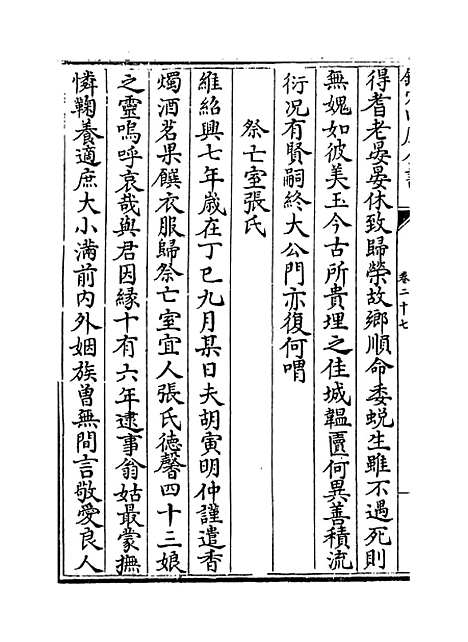 卷二十七
得耆老晏晏休致歸榮故鄉順命委蛻生雖不遇死則
無媿如彼美玉今古所貴埋之佳城韞匵何異善積流
衍况有賢嗣終大公門亦復何喟
祭亡室張氏
維紹興七年歲在丁巳九月某日夫胡寅明仲謹遣香
燭酒茗果饌衣服歸祭亡室宜人張氏德馨四十三娘
之靈嗚呼哀哉與君因緣十有六年逮事翁姑最蒙撫
憐鞠養適庶大小滿前内外姻族曾無間言敬愛良人